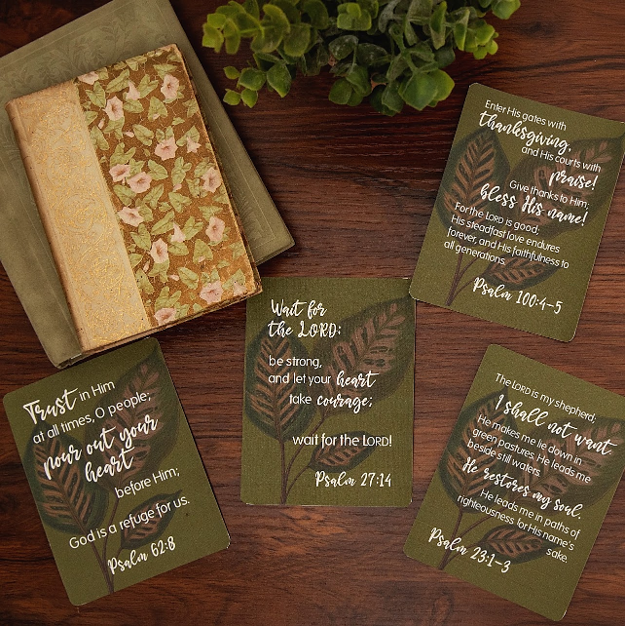 Enter His gates with
thanksgiving,
and His courts with
praise!
Give thanks to Him;
bless His name!
For the LORD is good;
His steadfast love endures
forever, and His faithfulness to
all generations.
Psalm 100:4-5
Wait for
the LORD:
be strong,
and let your heart
take courage;
wait for the LORD!
Psalm 27:14
Trust in Him
at all times, O people;
pour out your
heart
before Him;
God is a refuge for us.
Psalm 62:8
The LORD is my shepherd;
I shall not want.
He makes me lie down in
green pastures. He leads me
beside still waters.
He restores my soul.
He leads me in paths of
righteousness for His name's
sake.
Psalm 23:1-3